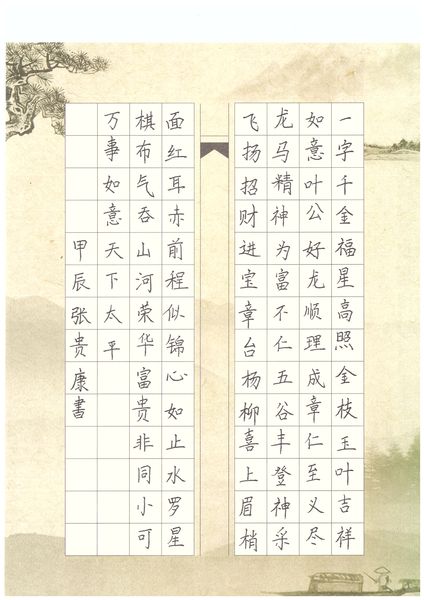 一字千金福星高照金枝玉叶吉祥
如意叶公好龙顺理成章仁至义尽
龙马精神为富不仁五谷丰登神采
飞扬招财进宝章台杨柳喜上眉梢
面红耳赤前程似锦心如止水罗星
棋布气吞山河荣华富贵非同小可
万事如意天下太平
甲辰张贵康書